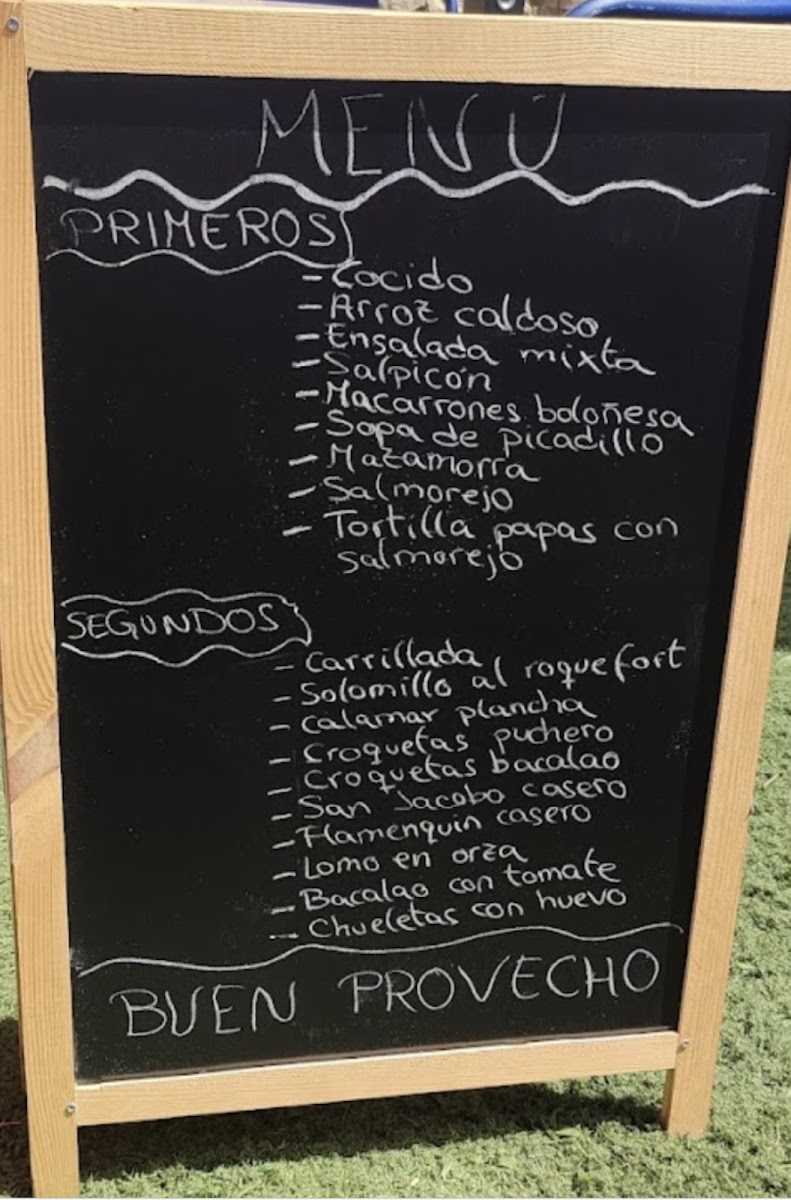 MENÚ
PRIMEROS
- Cocido
- Arroz caldoso
- Ensalada mixta
- Salpicón
- Macarrones boloñesa
- Sopa de picadillo
- Mazamorra
- Salmorejo
- Tortilla papas con
salmorejo
SEGUNDOS
- Carrillada
- Solomillo al roquefort
- Calamar plancha
- Croquetas puchero
- Croquetas bacalao
- San Jacobo casero
- Flamenquin casero
- Lomo en orza
- Bacalao con tomate
- Chueletas con huevo
BUEN PROVECHO